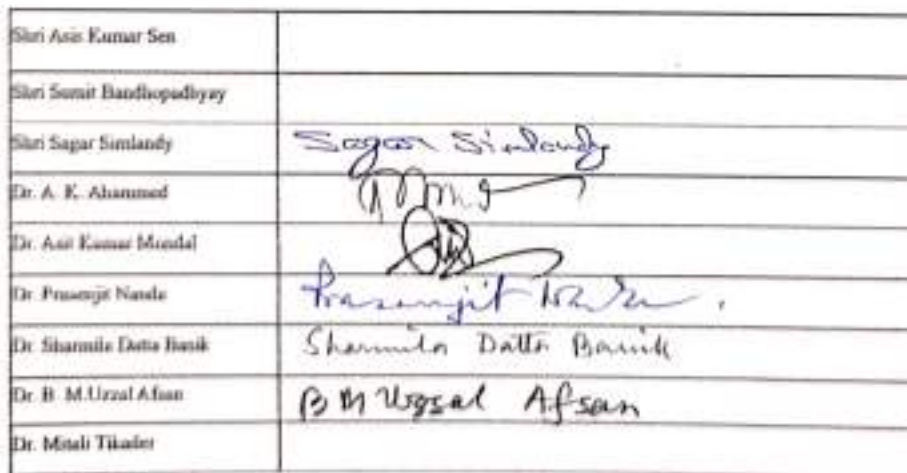 Shri Asis Kumar Sen
Shri Sumit Bandhopadhyay
Shri Sagar Simlandy Sagar Simlandy
Dr. A. K. Ahammed
Dr. Asit Kumar Mondal
Dr. Prasenjit Nanda Prasenjit
Dr. Sharmila Datta Banik Sharmila Datta Banik
Dr. B. M.Uzzal Afsan B M Uzzal Afsan
Dr. Mitali Tikader